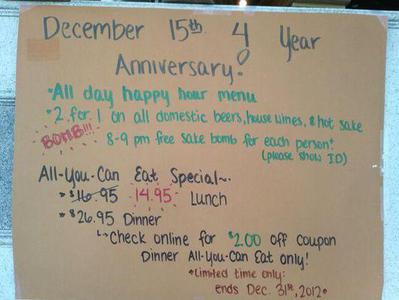 December 15th 4 Year
Anniversary!
•All day happy hour menu
•2 for 1 on all domestic beers, house wines, & hot sake
BOMB!!! 8-9 pm free sake bomb for each person!
(please show ID)
All-You-Can Eat Special~
•$16.95 14.95 Lunch
•$26.95 Dinner
↳Check online for $2.00 off coupon
Dinner All-You-Can Eat only!
*Limited time only:
ends Dec. 31st, 2012*